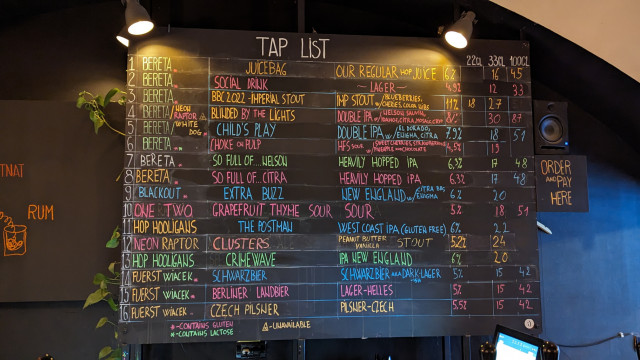 TAP LIST
22CL 33CL 100CL
1 BERETA JUICEBAG OUR REGULAR HOP JUICE 6% 16 45
2 BERETA SOCIAL DRINK - LAGER - 12 33
3 BERETA BBC 2022 - IMPERIAL STOUT IMP STOUT W/ BLUEBERRIES, 11% 18 27
4 BERETA NEON RAPTOR WHITE DOG BLINDED BY THE LIGHTS DOUBLE IPA W/ NELSON SAUVIN, 30 87
5 BERETA CHILD'S PLAY DOUBLE IPA W/ EL DORADO, ENIGMA, CITRA 7,9% 18 51
6 BERETA CHOKE ON PULP HFS SOUR 19
7 BERETA SO FULL OF.. NELSON HEAVILY HOPPED IPA 6.3% 17 48
8 BERETA SO FULL OF.. CITRA HEAVILY HOPPED IPA 6.3% 17 48
9 BLACKOUT EXTRA BUZZ NEW ENGLAND W/ CITRA BBC ENIGMA 6% 20
10 ONE TWO GRAPEFRUIT THYME SOUR SOUR 5% 18 51
11 HOP HOOLIGANS THE POSTMAN WEST COAST IPA (GLUTEN FREE) 6% 22
12 NEON RAPTOR CLUSTERS PEANUT BUTTER VANILLA - STOUT 5.2% 24
13 HOP HOOLIGANS CRIMEWAVE IPA NEW ENGLAND 6% 20
14 FUERST WIACEK SCHWARZBIER SCHWARZBIER AKA DARK-LAGER 5% 15 42
15 FUERST WIACEK BERLINER LANDBIER LAGER-HELLES 5% 15 42
16 FUERST WIACEK CZECH PILSNER PILSNER-CZECH 5.5% 15 42
*-CONTAINS GLUTEN
*-CONTAINS LACTOSE
-UNAVAILABLE
ORDER
AND PAY
HERE
TNAT
RUM